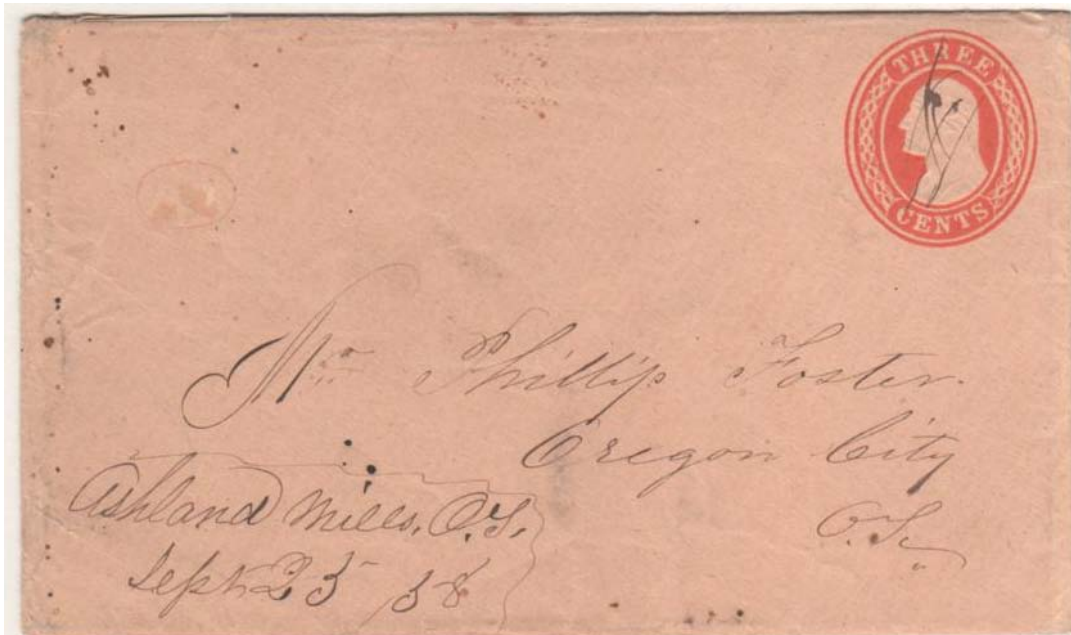 THREE
CENTS
Mr Phillip Foster.
Oregon City
O.T.
Ashland Mills, O.T.
Sept 25 58